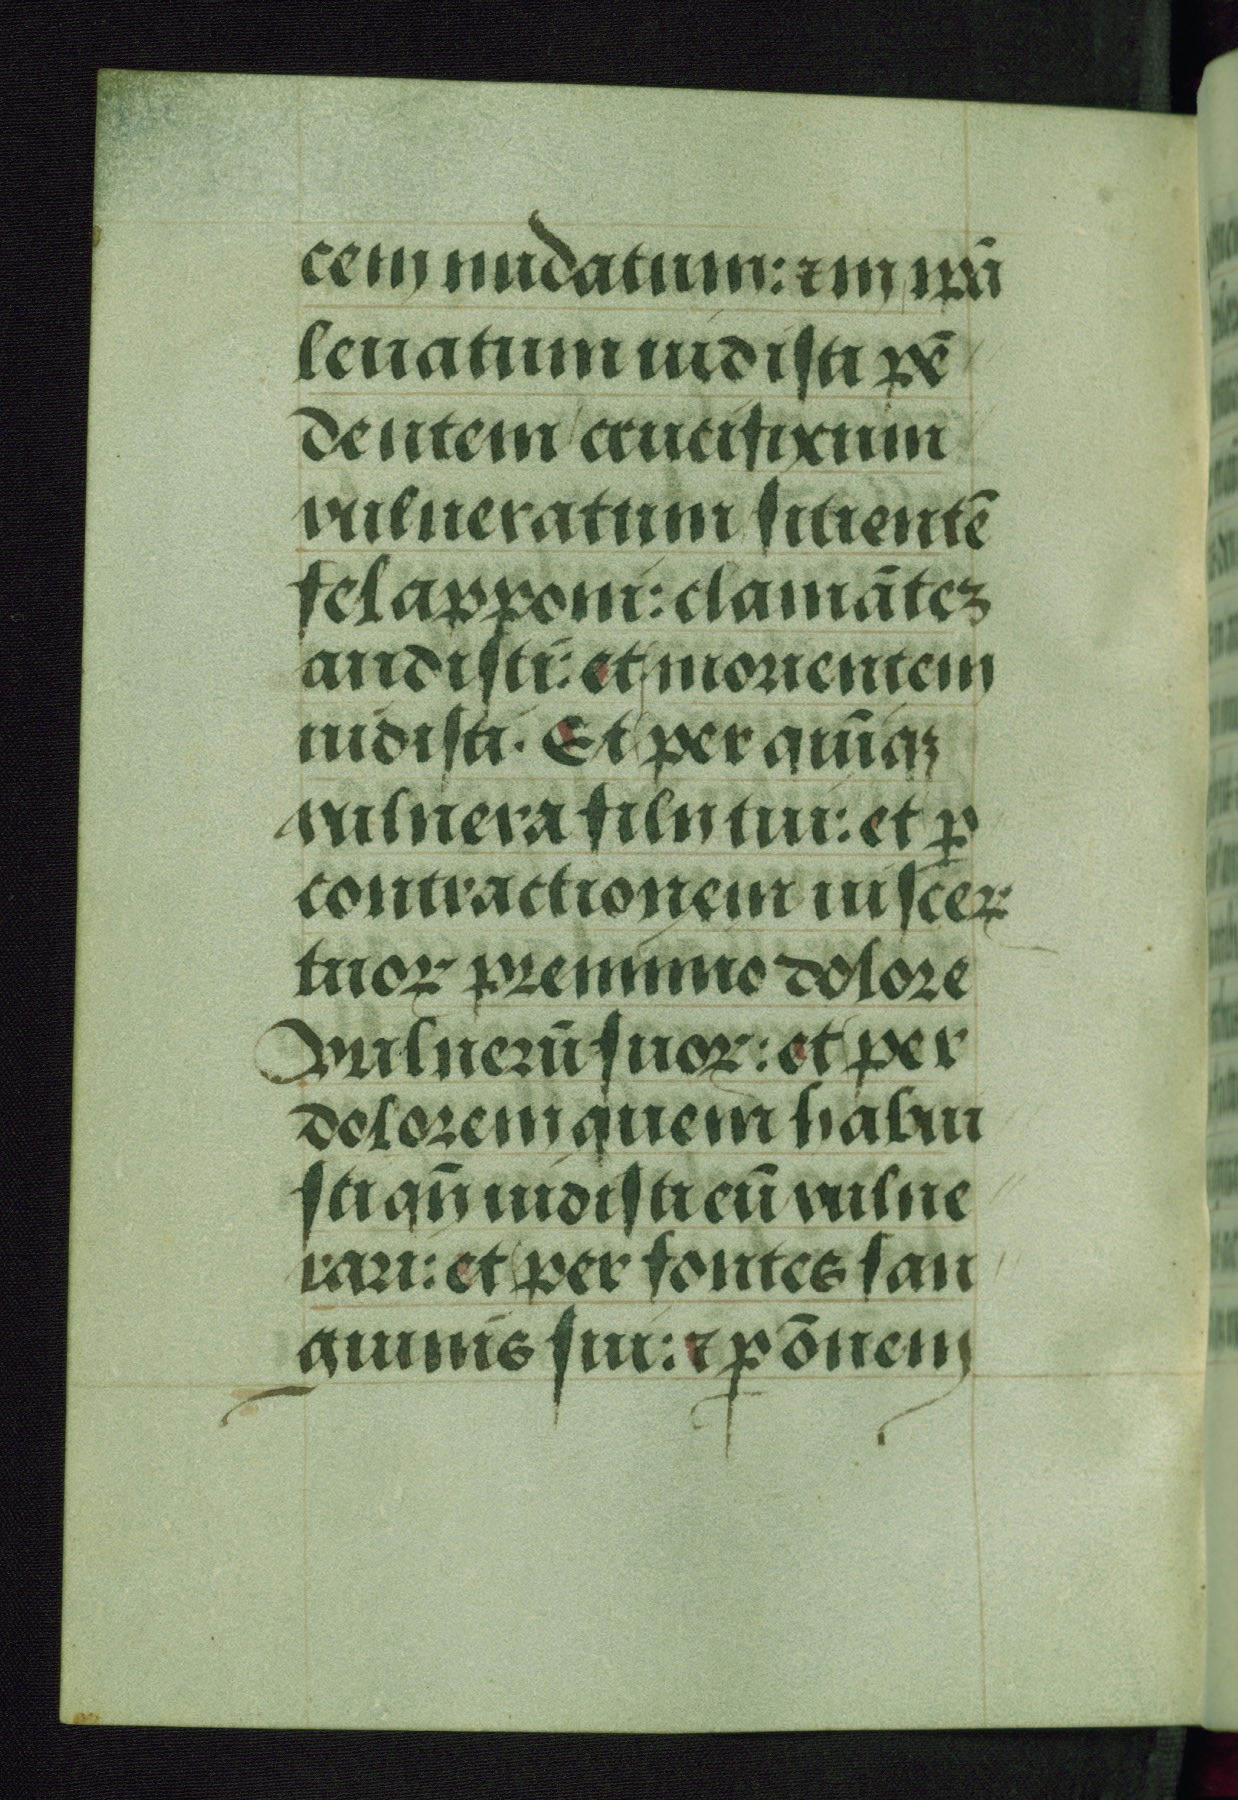 cem nudatum: ⁊ in ip̄ā
leuatum uidisti pē
dentem crucifixum
vulneratum sitientē
fel apponi: clamātez
audisti: et morientem
uidisti. Et per quīqꝫ
vulnera filij tui: et ꝑ
contractionem uisceꝝ
tuoꝝ pre nimio dolore
vulnerū suoꝝ: et per
dolorem quem habui
sti qn̄ uidisti eū vulne
rari: et per fontes san
guinis sui: ⁊ ꝑ ōnem